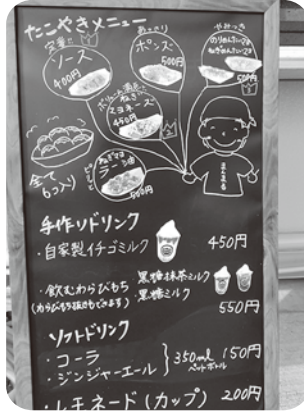 たこやきメニュー
定番!!
ソース
400円
あっさり
ポンズ
500円
やみつき
500円
ボリューム満点
ねぎ
マヨネーズ
450円
ピリピリ
ねぎマヨ
ラー油
500円
全て
6つ入り
手作りドリンク
・自家製イチゴミルク 450円
・飲むわらびもち 黒糖抹茶ミルク
(わらびもち抜きもできます) 黒糖ミルク
550円
ソフトドリンク
・コーラ
・ジンジャーエール } 350ml ペットボトル 150円
・レモネード(カップ) 200円